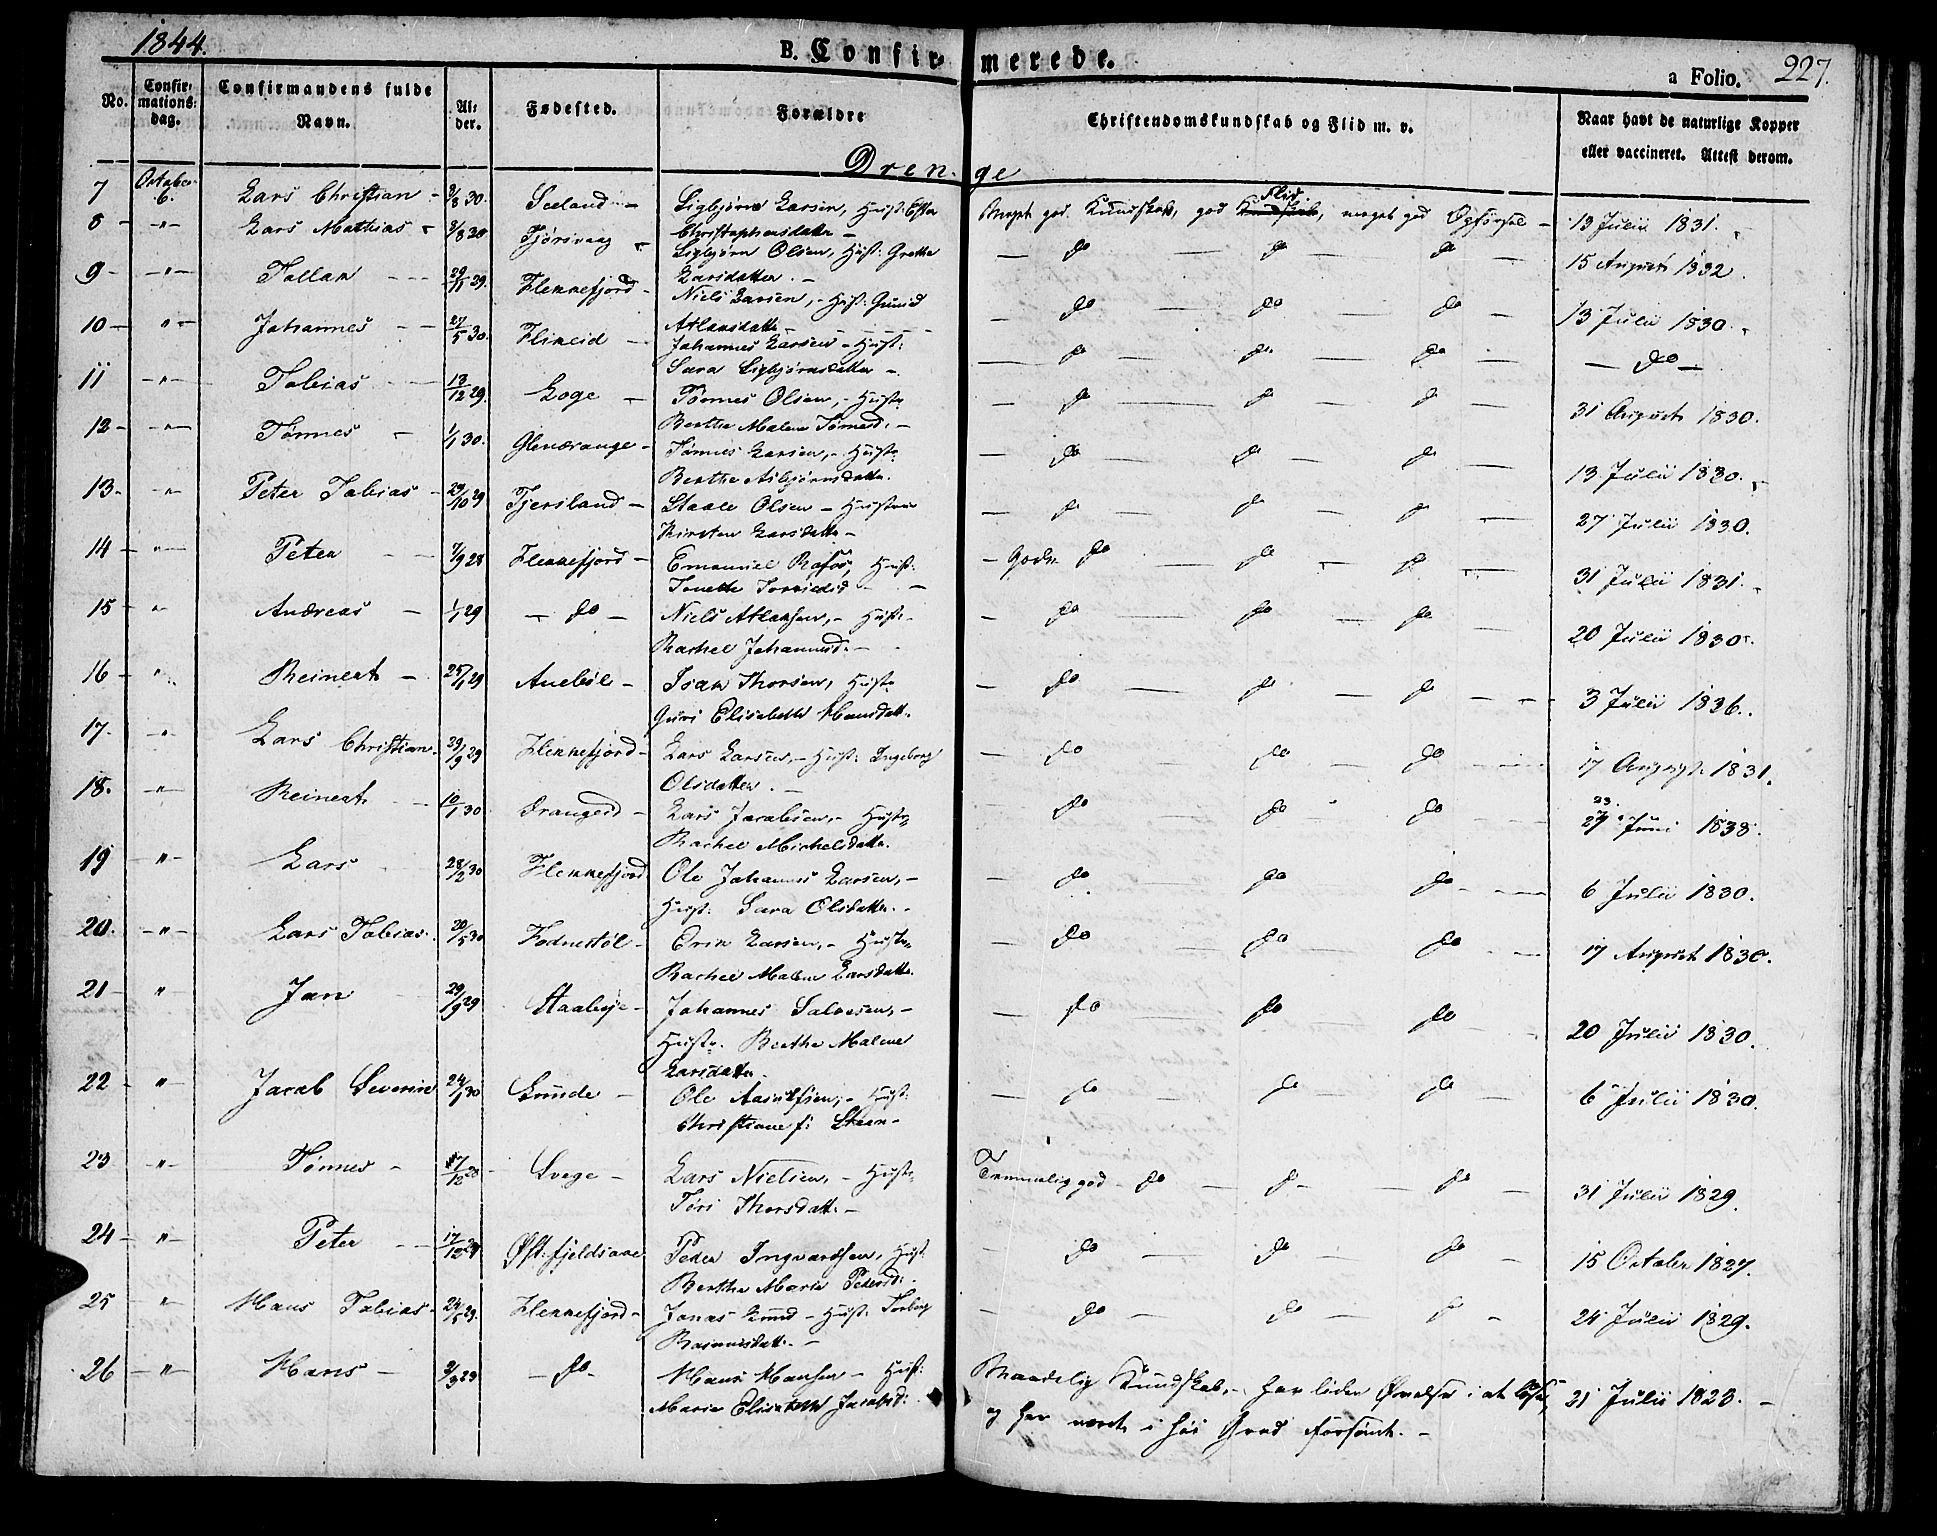 1844.
B. Confirmerede.
a Folio. 227.
No.
Confirmations-dag.
Confirmandens fulde Navn.
Alder.
Fødested.
Forældre
Christendomskundskab og Flid m. v.
Naar havt de naturlige Kopper eller vaccineret. Attest derom.
Drenge
7 October 6. Lars Christian - 3/8 30. Seeland - Sigbjørn Larsen, Hust: Ester Christophersdatter - Meget god Kundskab, god Kundskab Flid, meget god Opførsel - 13 Julii 1831.
8 - " - Lars Mathias - 3/8 30 Tjørsvaag - Sigbjørn Olsen, Hust: Grethe Larsdatter. - do - do do - 15 August 1832.
9 - " - Tallak - 29/11 29. Flekkefjord - Niels Larsen, - Hust: Gunild Atlaksdatter - do do do 13 Julii 1830.
10 - " - Johannes - 27/5 30. Flikeid - Johannes Larsen - Hust: Sara Sigbjørnsdatter - do - do - do - - do -
11 - " - Tobias - 13/12 29. Loge - Tønnes Olsen, - Hustr: Berthe Malene Tønnesd: - do - do - do - 31 August 1830.
12 - " - Tønnes - 1/1 30. Glendrange - Tønnes Larsen, - Hustr: Berthe Asbjørnsdatter. - do - do - do - 13 Julii 1830.
13. - " - Peter Tobias - 29/10 29 Tjersland - Staale Olsen - Hustrue Kirsten Larsdatter - do - do - do - 27 Julii 1830.
14 - " - Peter - 7/9 28 Flekkefjord - Emanuel Rafos, Hust: Tonette - Godn do - do - do - 31 Julii 1831.
15 - " Andreas - 1/1 29 - do - Niels Atlaksen, - Hust: Rachel Johannesd. - do - do - do - 20 Julii 1830.
16 - " Reinert - 25/1 29 Aneböe - Isak Thorsen, Hustr: Guri Elisabeth Hansdatt. - do - do - do - 3 Julii 1836.
17. - " Lars Christian - 29/9 29 Flekkefjord - Lars Larsen, - Hust: Ingeborg Olsdatter. - do do do - 17 August 1831.
18. - " - Reinert - 10/1 30 Drangeid - Lars Jacobsen, - Hustr: Rachel Michelsdatter. - do do do - 23. 27 Juni 1838.
19 - " - Lars 28/2 30 Flekkefjord Ole Johannes Larsen, - Hust: Sara Olsdatter. - - do do do - 6 Julii 1830.
20. - " - Lars Tobias. 20/5 30 Fodnestöl - Erik Larsen, - Hustr: Rachel Malene Larsdatter. - do do do - 17 August 1830.
21 - " Jan 29/9 29 Staaleyje - Johannes Salvesen, - Hustr. Berthe Malene Larsdatter. - do do do 20 Julii 1830.
22 - " Jacob Severin 24/1 30 Grunde - Ole - Hust: Christiane f: Steen - - do do do 6 Julii 1830.
23 - " - Tønnes - 17/12 28 - Svege - Lars Nielsen, - Hustr: Tori Thorsdatt. - Temmelig god - do - do - do - 31 Julii 1829.
24 - " - Peter - 17/10 29 Øst: fjeldsaae Peder Ingvardsen, Hust: Berthe Marie Pedersd: - do do do - 15 October 1827.
25 - " Hans Tobias - 24/5 29. Flekkefjord - Jonas Lund - Hust: Torborg Rasmusdatt. - - do - do - do - 24 Julii 1829.
26 - " - Hans - 2/3 29 - do - Hans Hansen - Hust: Marie Elisabeth Jacobsd: Maadelig Kundskab, - har liden Øvelse i at læse, og har været i høi Grad forsømt. - 21 Julii 1828. -